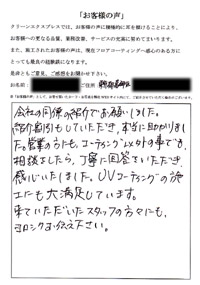 「お客様の声」
クリーンエクスプレスでは、お客様の声に積極的に耳を傾けることにより、
お客様への更なる品質、業務改善、サービスの充実に努めてまいります。
また、施工されたお客様の声は、現在フロアコーティングへ感心のある方に
とっても最良の経験談になります。
是非ともご意見、ご感想をお聞かせ下さい。
お名前
ご住所
会社の同僚の紹介でお願いしました。
紹介割引もしていただき、本当に助かりまし
た。営業の方にも、コーティングのメンテの事でも、
相談をしたら、丁寧に回答をいただき、
感心いたしました。UVコーティングの施
工にも大満足しています。
来ていただいたスタッフの方々にも、
ヨロシクお伝え下さい。